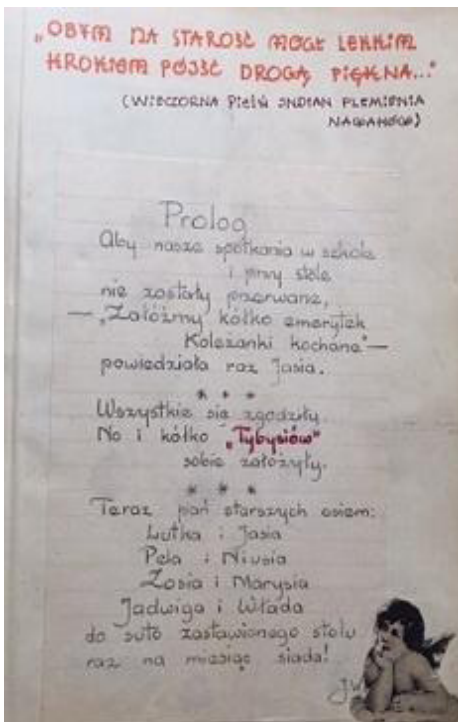 „OBYM NA STAROŚĆ MÓGŁ LEKKIM
KROKIEM PÓJŚĆ DROGĄ PIĘKNA..."
(WIECZORNA Pieśń INDIAN PLEMIENIA
NAWAHÓW)
Prolog
Aby nasze spotkania w szkole
i przy stole
nie zostały przerwane,
—„Załóżmy kółko emerytek
Koleżanki kochane"—
powiedziała raz Jasia.
* * *
Wszystkie się zgodziły.
No i kółko „Tybysiów"
sobie założyły.
* * *
Teraz pań starszych osiem:
Lutka i Jasia
Pela i Niusia
Zosia i Marysia
Jadwiga i Włada
do suto zastawionego stołu
raz na miesiąc siada!